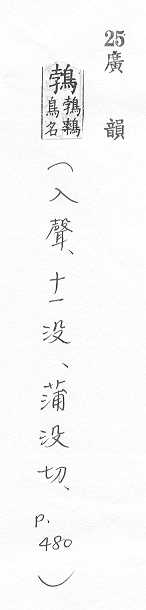 25廣韻
鵓鵓鳥名(入聲、十一没、蒲没切、p.480)